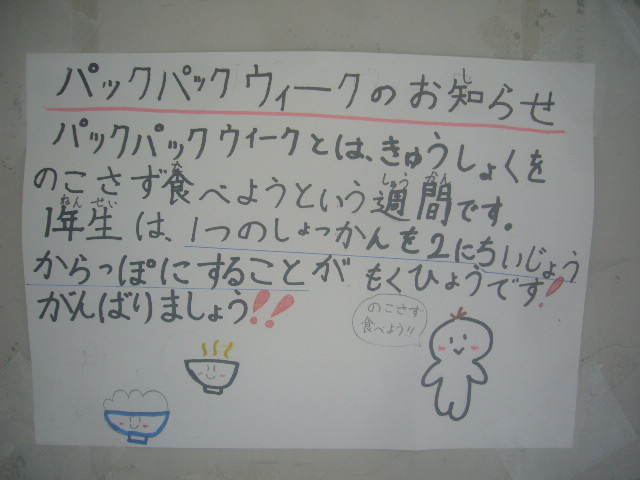 パックパックウィークのお知らせ
し
パックパックウィークとは、きゅうしょくを
のこさず食べようという週間です。
た しゅう かん
1年生は、1つのしょっかんを2にちいじょう
ねん せい
からっぽにすることがもくひょうです!
がんばりましょう!!
のこさず
食べよう!!